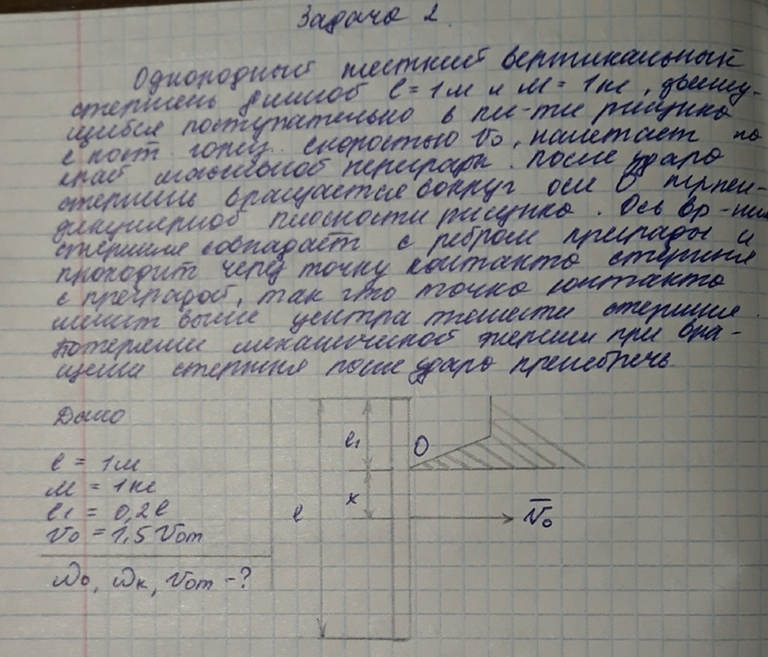 Задача 2
Однородный жесткий вертикальный
стержень длиной l = 1м и М = 1кг, движу-
щийся поступательно в пл-ти рисунка
с пост. гориз. скоростью V₀, налетает на
край массивной преграды. После удара
стержень вращается вокруг оси О перпен-
дикулярной плоскости рисунка. Ось вр-ния
стержня совпадает с ребром преграды и
проходит через точку контакта стержня
с преградой, так что точка контакта
лежит выше центра тяжести стержня.
Потерями механической энергии при вра-
щении стержня после удара пренебречь
Дано
l = 1м
М = 1кг
l₁ = 0,2l
V₀ = 1,5 Vот
ω₀, ωк, Vот - ?
l₁
O
x
l
V̄₀